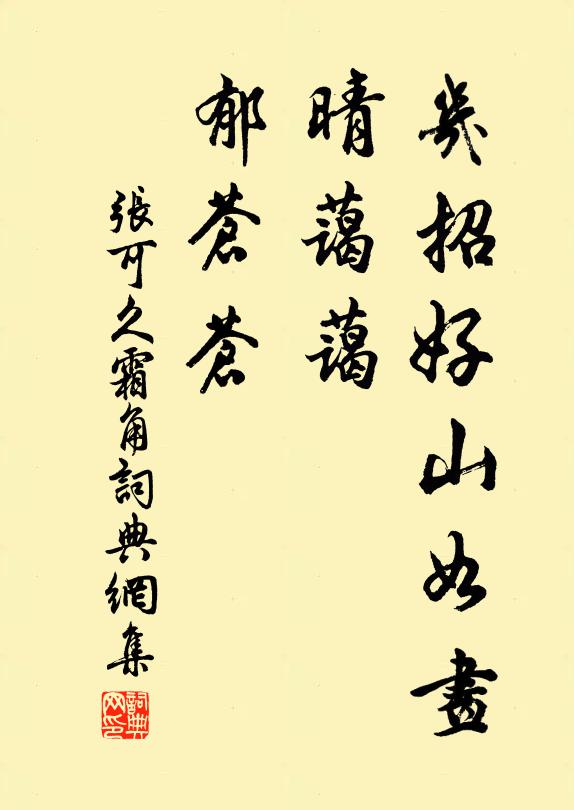 幾招好山如畫
晴藹藹
郁蒼蒼
張可久霜角詞典網集
詞典网印